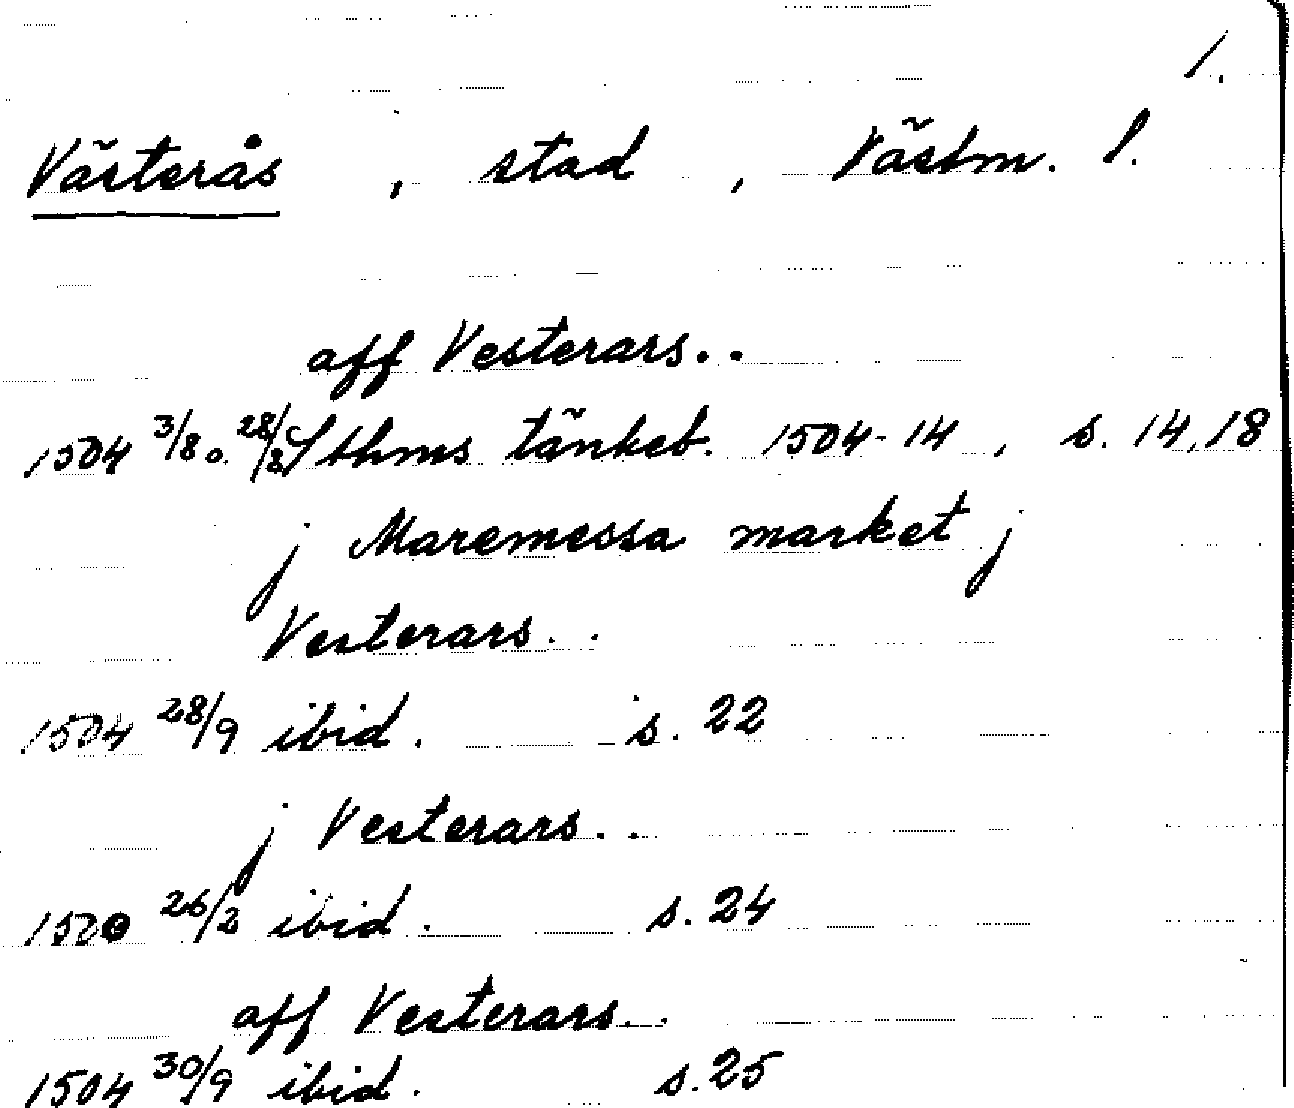 1.
Västerås, stad, Västm. l.
aff Vesterars..
1504 3/8 o. 28/8 Sthms tänkeb. 1504-14, s. 14, 18
j Maremessa market j
Vesterars..
1504 28/9 ibid. s. 22
j Vesterars..
26/2 ibid. s. 24
aff Vesterars..
1504 30/9 ibid. s. 25